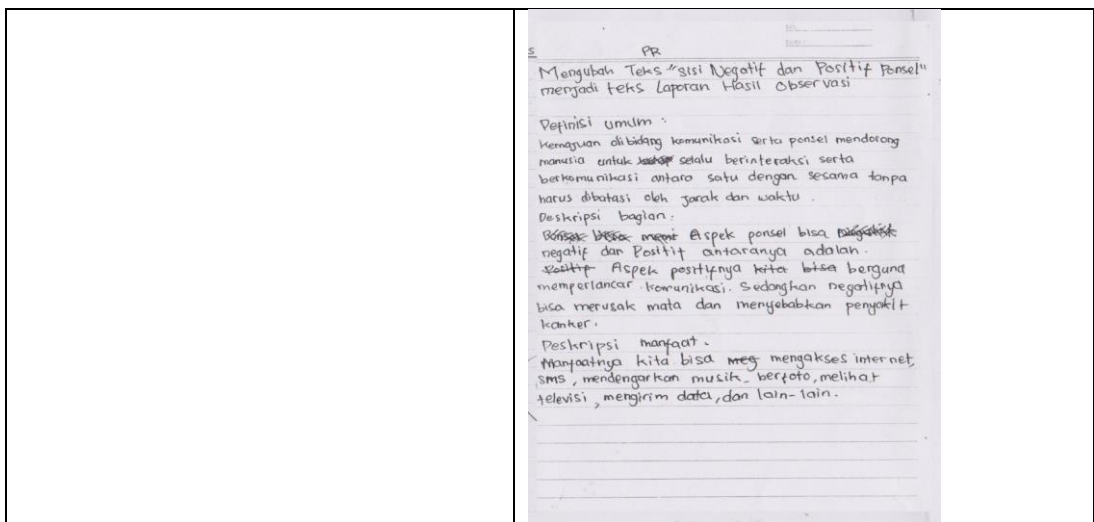 s PR
Mengubah Teks "Sisi Negatif dan Positif Ponsel"
menjadi teks Laporan Hasil Observasi
Definisi umum :
Kemajuan dibidang komunikasi serta ponsel mendorong
manusia untuk selalu berinteraksi serta
berkomunikasi antara satu dengan sesama tanpa
harus dibatasi oleh jarak dan waktu .
Deskripsi bagian :
Aspek ponsel bisa
negatif dan Positif antaranya adalah .
Positif Aspek positifnya kita bisa berguna
memperlancar komunikasi. Sedangkan negatifnya
bisa merusak mata dan menyebabkan penyakit
kanker.
Deskripsi manfaat .
Manfaatnya kita bisa meg mengakses internet,
SMS, mendengarkan musik, berfoto, melihat
televisi, mengirim data, dan lain-lain.